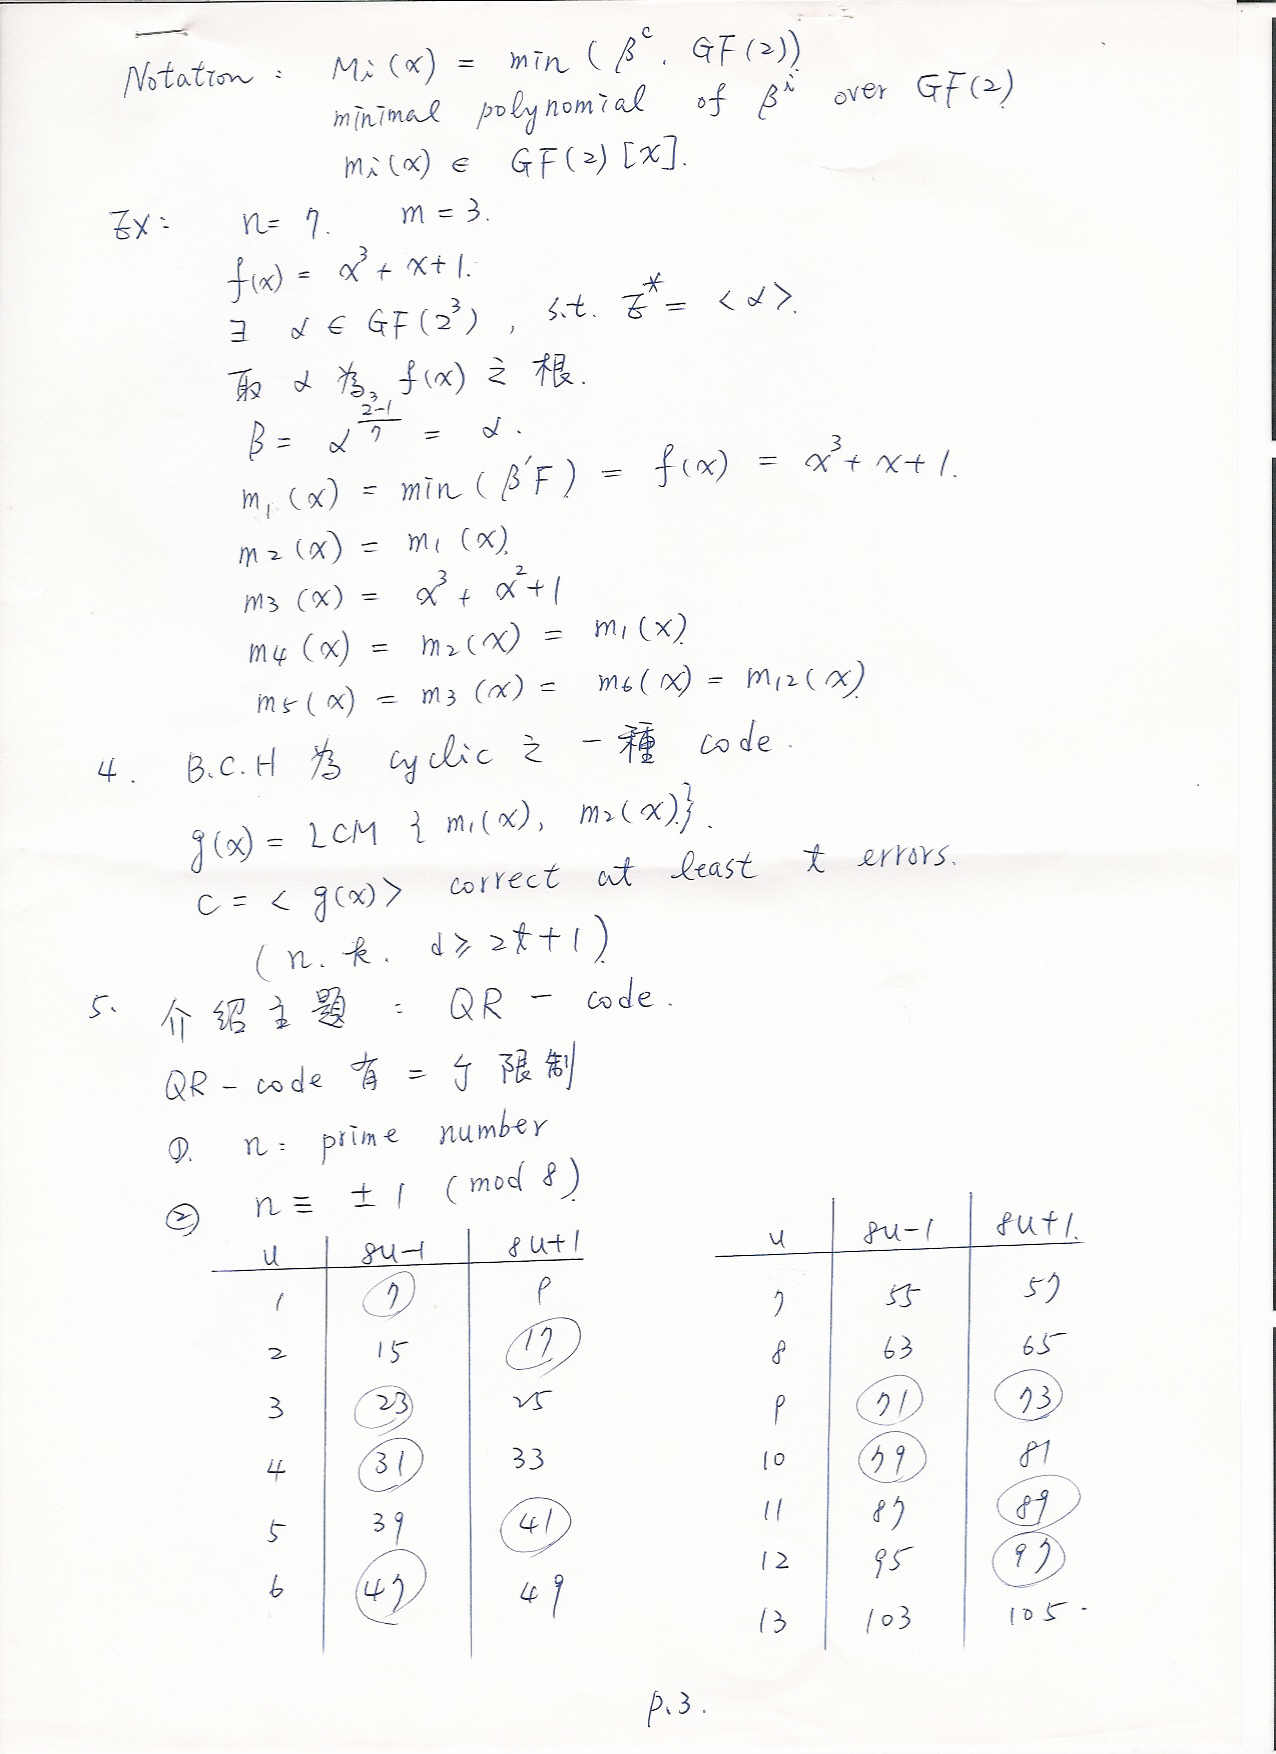 Notation : Mi(x) = min ( β^c , GF(2))
minimal polynomial of β^i over GF(2)
mi(x) ∈ GF(2)[x].
Ex : n = 7. m = 3.
f(x) = x^3 + x + 1.
∃ α ∈ GF(2^3) , s.t. E^* = <α>.
取 α 為 f(x) 之 根.
β = α^((2^3-1)/7) = α.
m1(x) = min ( β' F ) = f(x) = x^3 + x + 1.
m2(x) = m1(x).
m3(x) = x^3 + x^2 + 1
m4(x) = m2(x) = m1(x).
m5(x) = m3(x) = m6(x) = m12(x).
4. B.C.H 為 cyclic 之 一種 code.
g(x) = LCM { m1(x), m2(x) }.
C = < g(x) > correct at least t errors.
( n. k. d ≥ 2t + 1 ).
5. 介紹主題 : QR - code.
QR - code 有 = 个 限制
①. n = prime number
② n ≡ ± 1 (mod 8).
u 8u-1 8u+1
1 7 9
2 15 17
3 23 25
4 31 33
5 39 41
6 47 49
u 8u-1 8u+1.
7 55 57
8 63 65
9 71 73
10 79 81
11 87 89
12 95 97
13 103 105.
p.3.